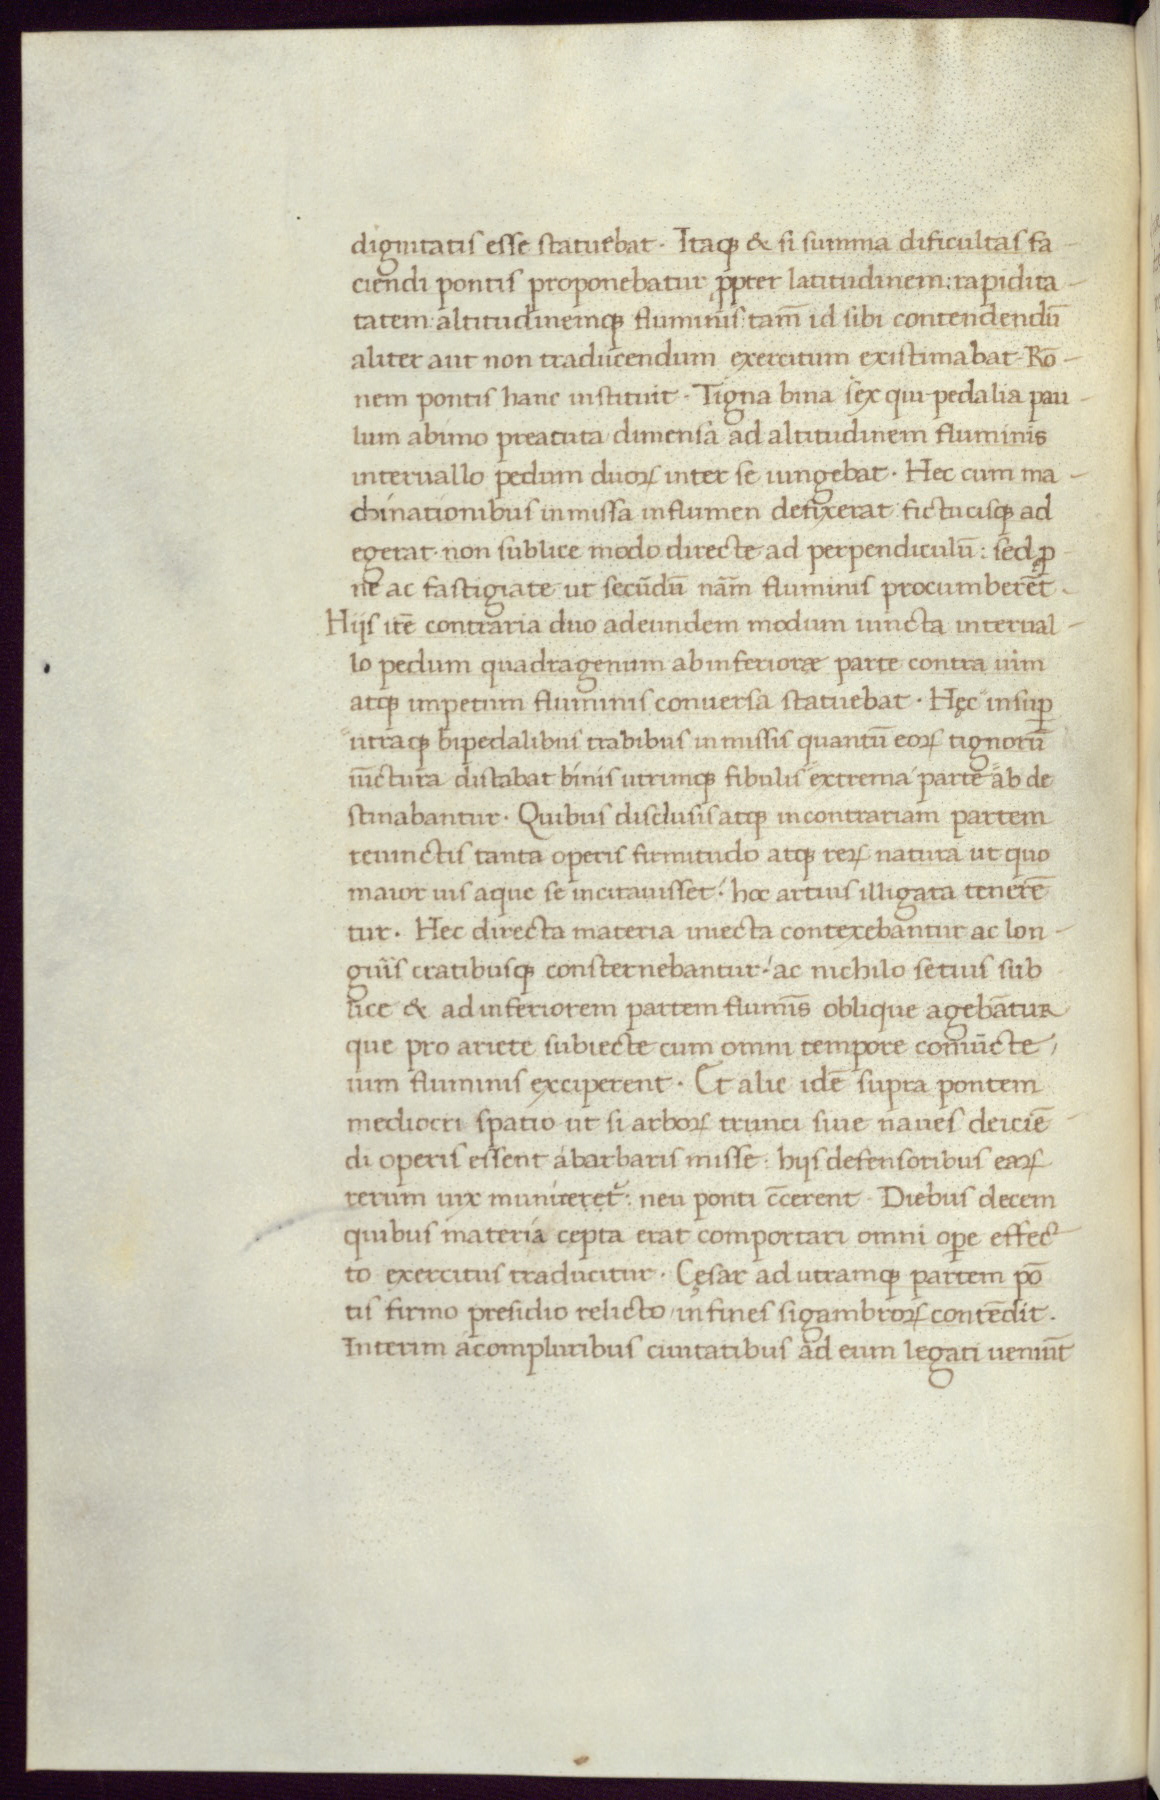 dignitatis esse statuebat. Itaqꝫ & si summa dificultas fa-
ciendi pontis proponebatur ꝓpter latitudinem: rapidita-
tatem: altitudinemqꝫ fluminis: tam̄ id sibi contendendū
aliter aut non traducendum exercitum existimabat. Rō-
nem pontis hanc instituit. Tigna bina sex qui pedalia pau-
lum abimo preacuta dimensa ad altitudinem fluminis
interuallo pedum duoꝝ inter se iungebat. Hec cum ma-
chinationibus inmissa influmen defixerat fictucisqꝫ ad
egerat. non sublice modo directe ad perpendiculū: sed ꝓ-
ne ac fastigiate ut secūdū nām fluminis procumberēt.
Hijs itē contraria duo adeundem modum iuncta interual-
lo pedum quadragenum abinferioræ parte contra uim
atqꝫ impetum fluminis conuersa statuebat. Hęc insuꝑ
utraqꝫ bipedalibus trabibus inmissis quantū eoꝝ tignorū
iūctura distabat binis utrimqꝫ fibulis extrema parte ab de
stinabantur. Quibus disclusis atqꝫ incontrariam partem
reuinctis tanta operis firmitudo atqꝫ reꝝ natura ut quo
maior uis aque se incitauisset: hoc artius illigata tenerē
tur. Hec directa materia iniecta contexebantur ac lon-
guiis cratibusqꝫ consternebantur: ac nichilo setius sub
lice & adinferiorem partem flumīs oblique agebātur
que pro ariete subiecte cum omni tempore coniūcte
uim fluminis exciperent. Et alie idē supra pontem
mediocri spatio ut si arboꝝ trunci siue naues deiciē-
di operis essent abarbaris misse: hijs defensoribus eaꝝ
rerum uix muniteret᷑: neu ponti c̄cerent. Diebus decem
quibus materia cepta erat comportari omni oꝑe effec
to exercitus traducitur. Cęsar ad utramqꝫ partem pō
tis firmo presidio relicto infines sigambroꝝ contēdit.
Interim acompluribus ciuitatibus ad eum legati ueniūt